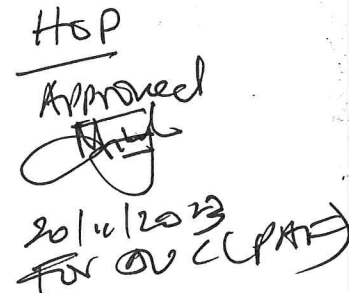 HOP
Approved
20/11/2023
For DV (CPAF)